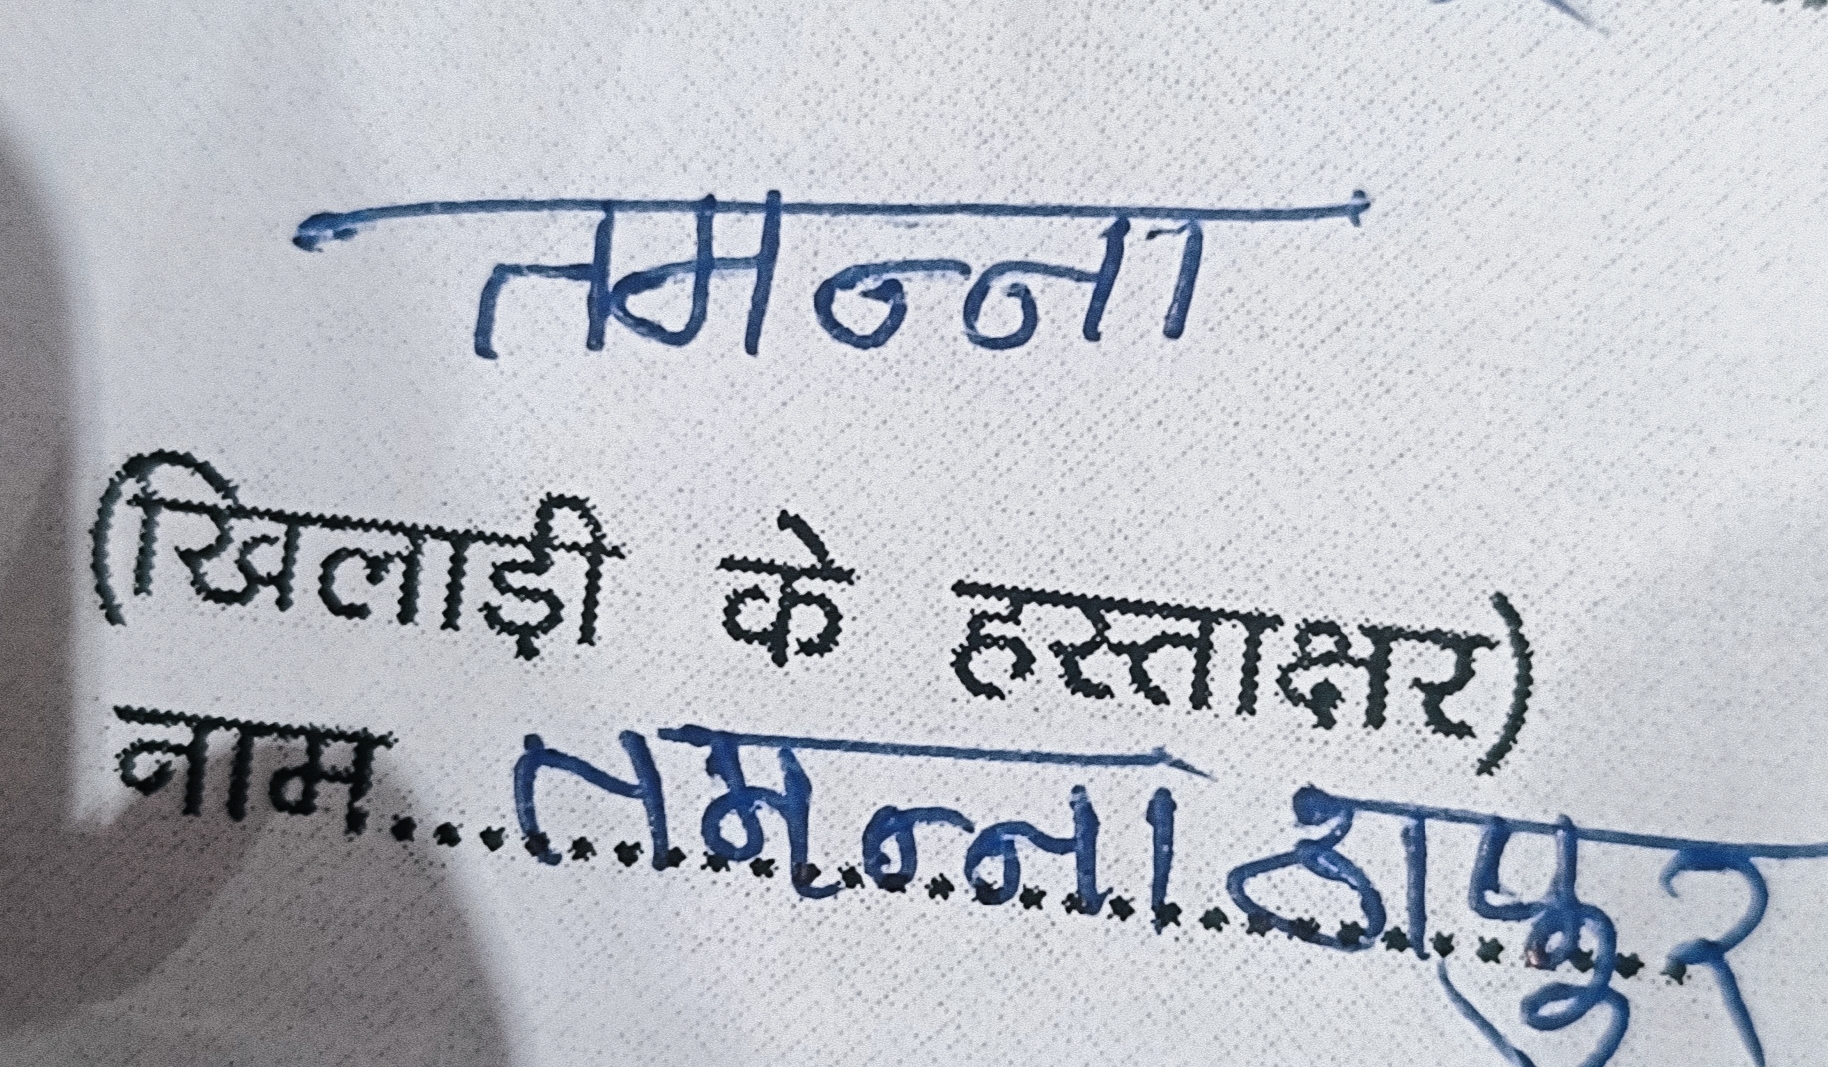 तमन्ना
(खिलाड़ी के हस्ताक्षर)
नाम.......तमन्ना ठापुर